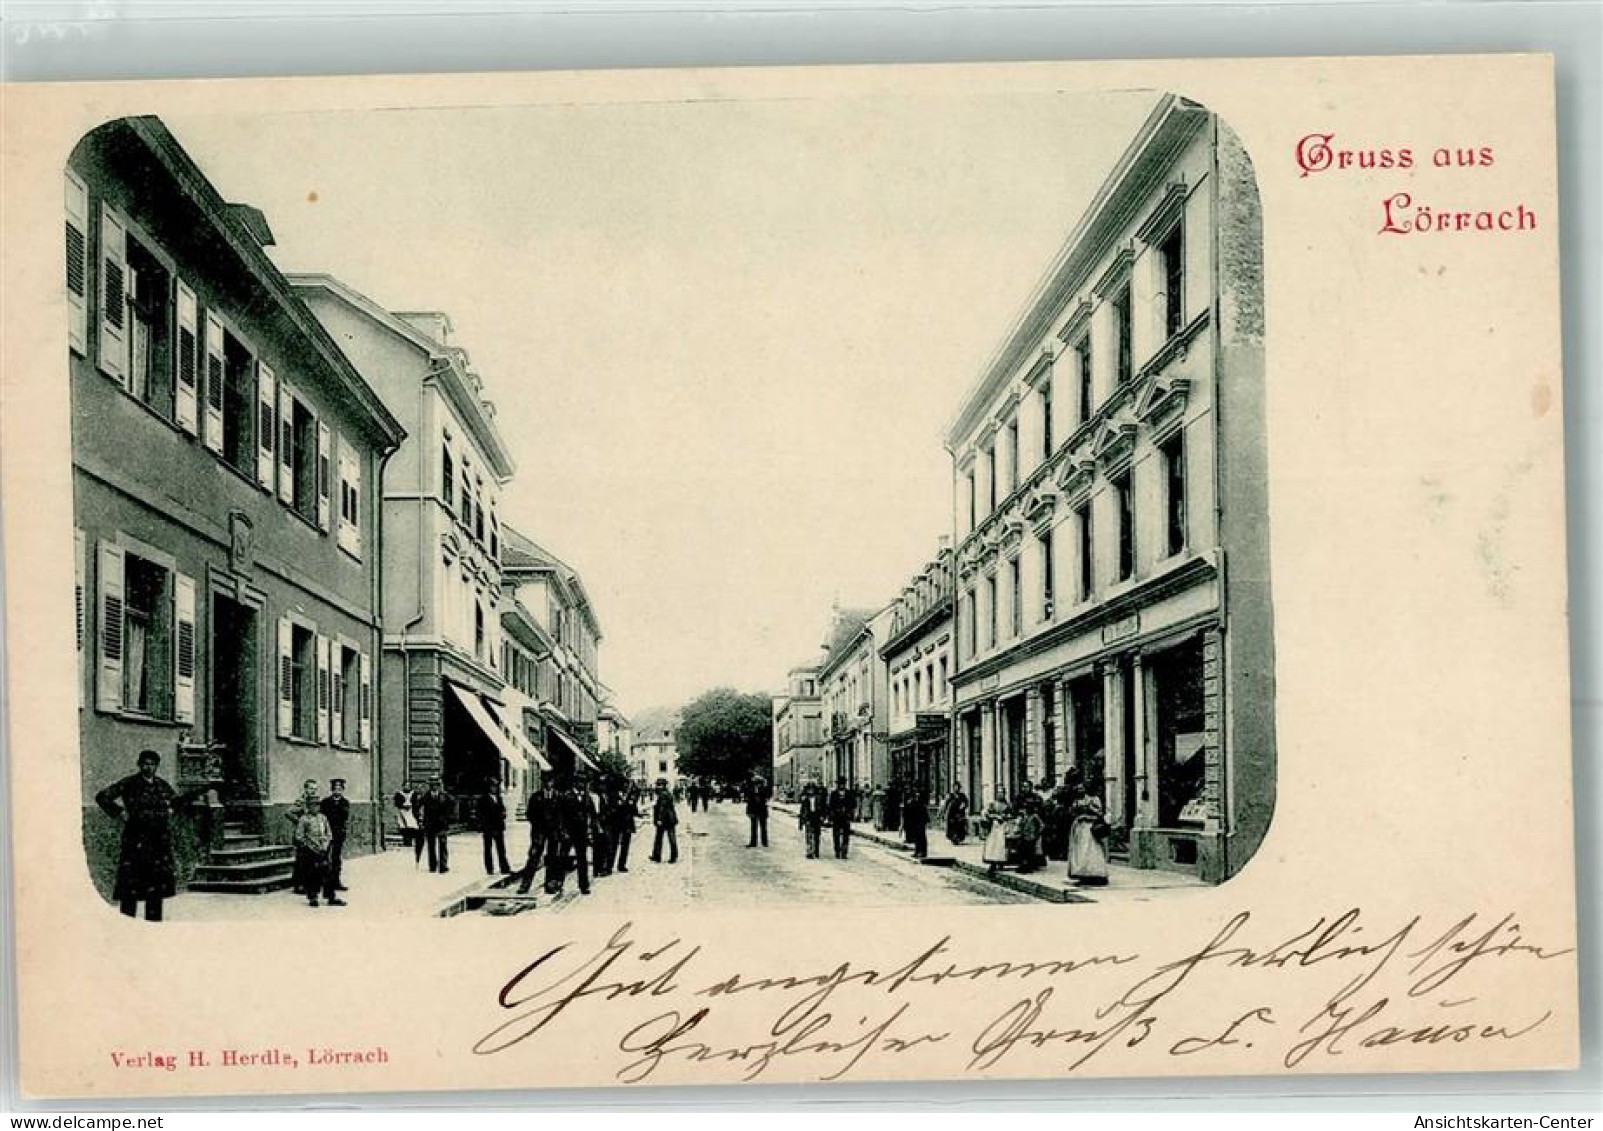 Gruss aus
Lörrach
Gut angekommen herlich schön
Herzlicher Gruß L. Hauser
Verlag H. Herdle, Lörrach
Ansichtskarten-Center